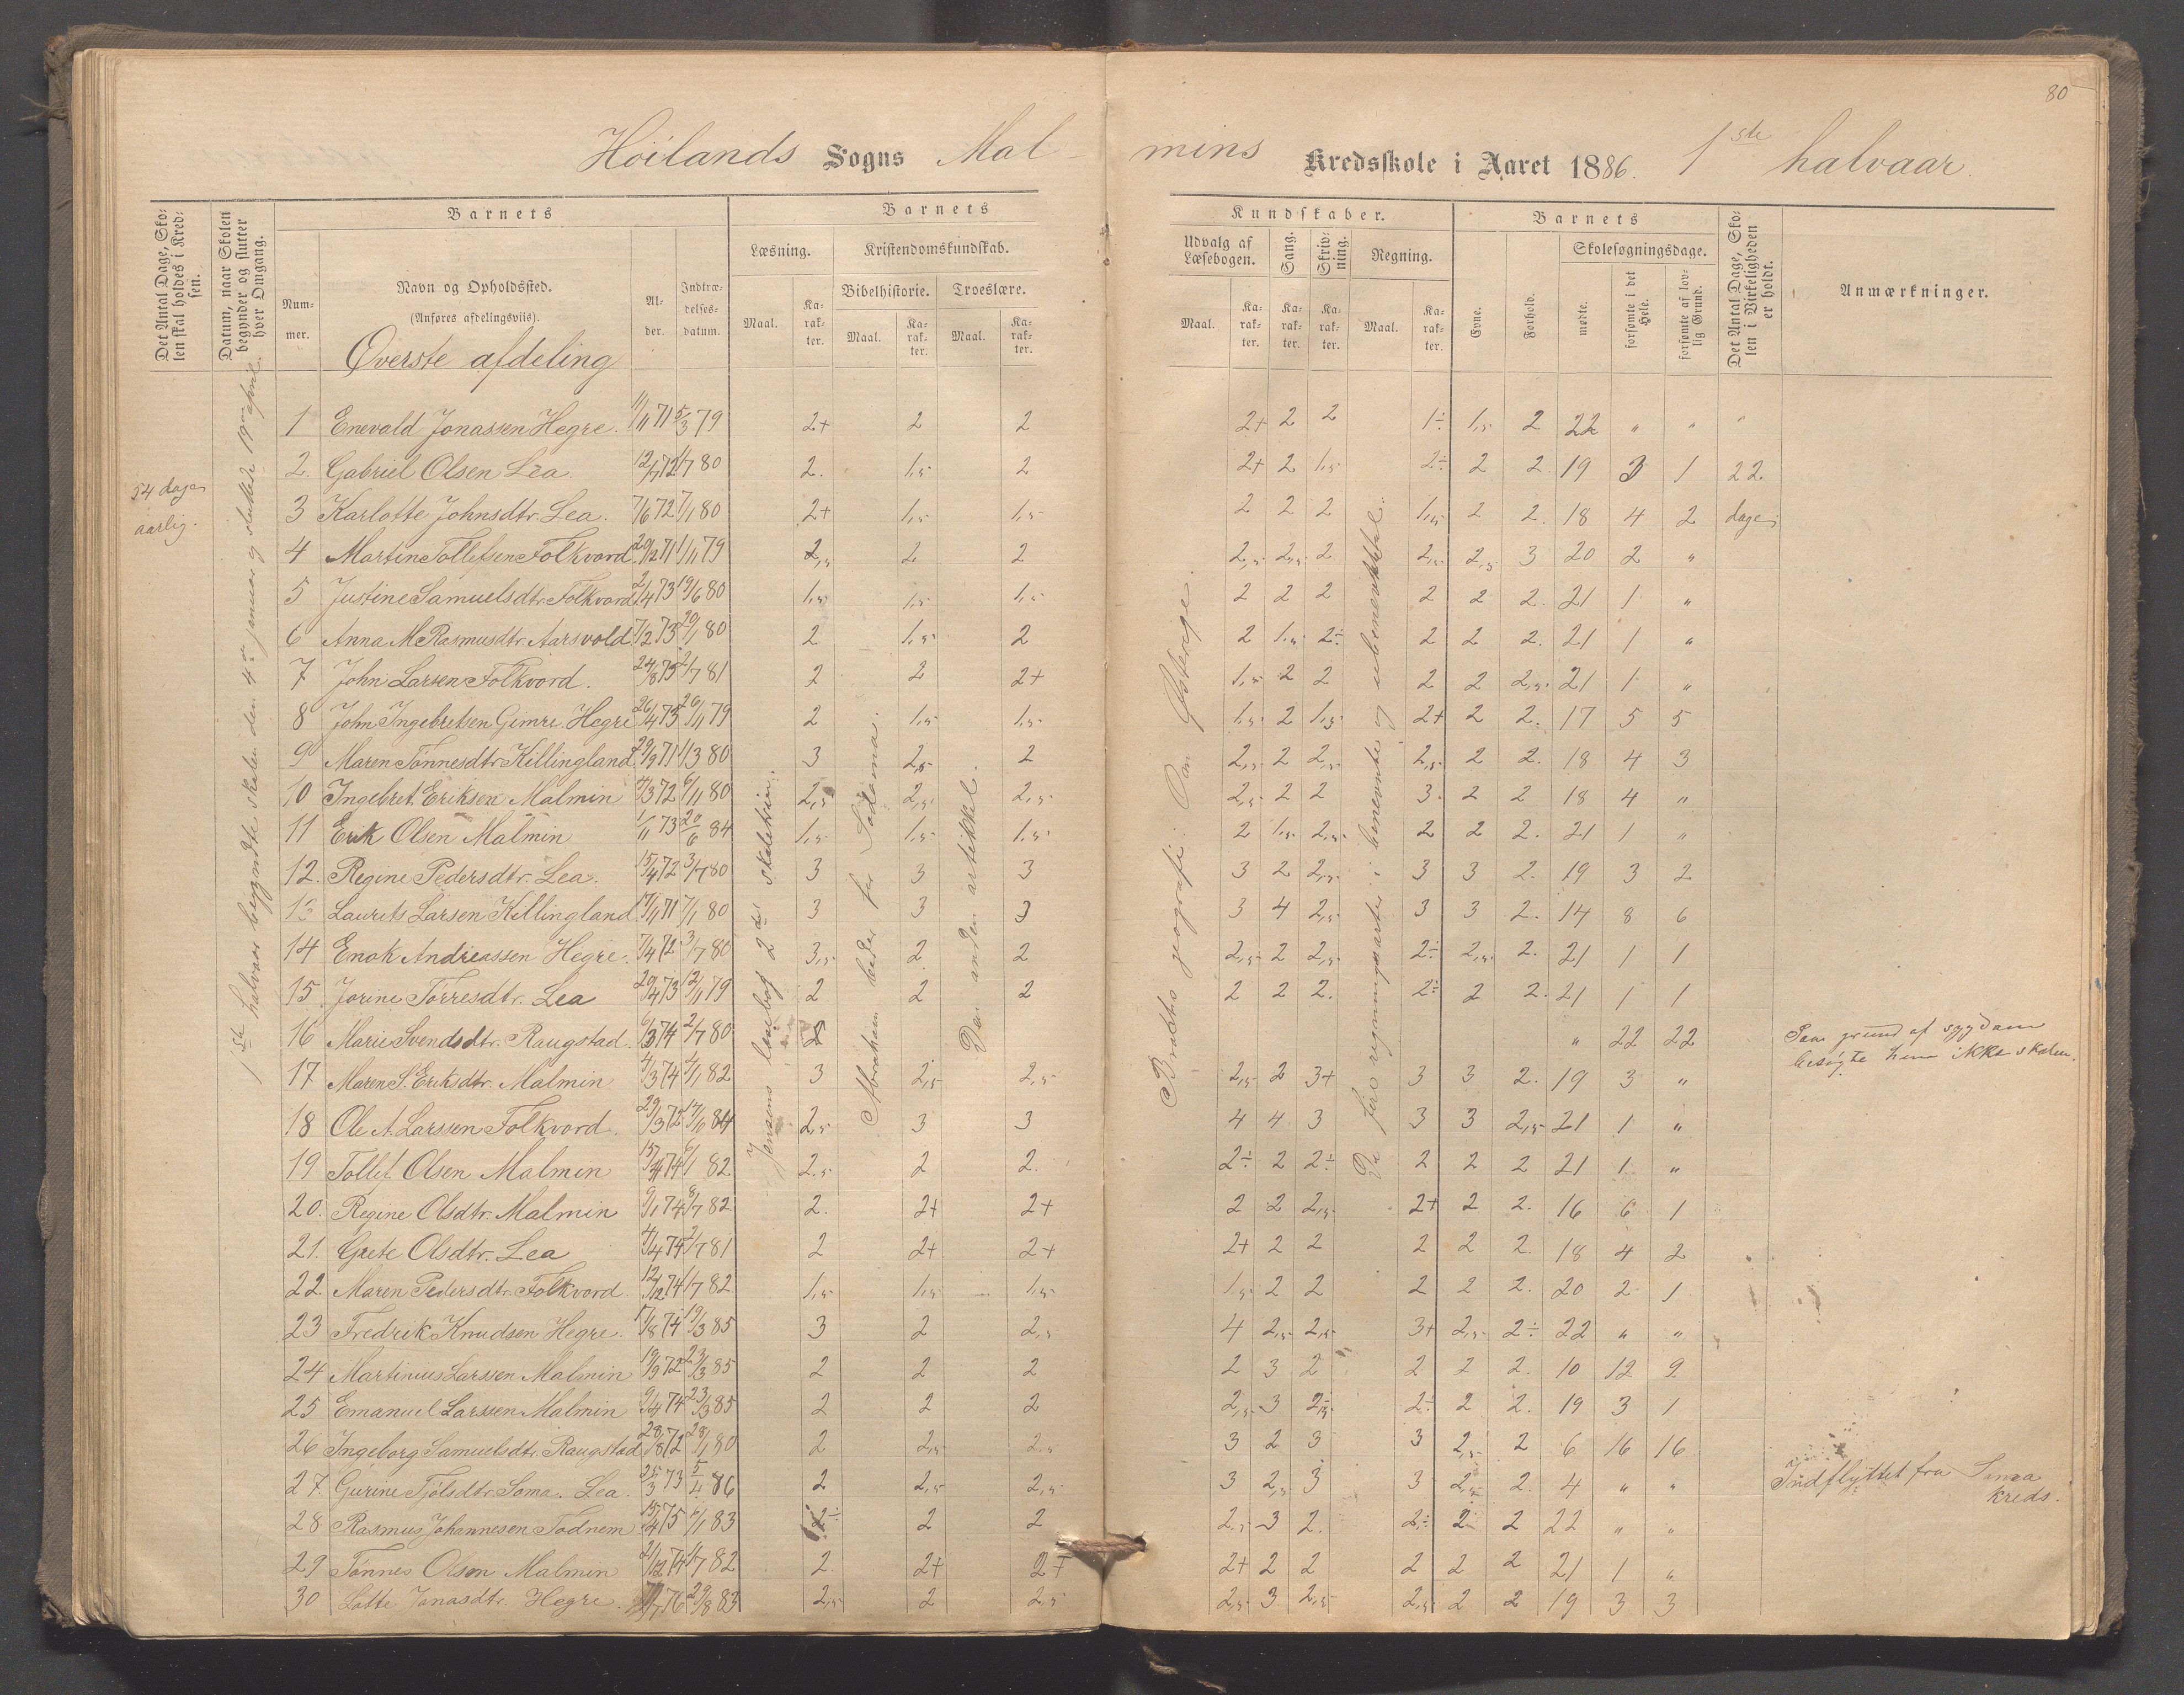 80
Höilands Sogns Mal-
mins Kredsskole i Aaret 1886. 1ste halvaar.
Det Antal Dage, Skolen skal holdes i Kredsen.
Datum, naar Skolen begynder og slutter hver Omgang.
Barnets
Nummer.
Navn og Opholdssted.
(Anføres afdelingsviis).
Alder.
Indtrædelsesdatum.
Barnets
Læsning.
Kristendomskundskab.
Bibelhistorie.
Troeslære.
Maal.
Karakter.
Maal.
Karakter.
Maal.
Karakter.
Kundskaber.
Udvalg af Læsebogen.
Sang.
Skrivning.
Regning.
Maal.
Karakter.
Karakter.
Karakter.
Maal.
Karakter.
Barnets
Evne.
Forhold.
Skolesøgningsdage.
mødte.
forsømte i det Hele.
forsømte af lovlig Grund.
Det Antal Dage, Skolen i Virkeligheden er holdt.
Anmærkninger.
Øverste afdeling
54 dage
aarlig.
1ste halvaar begyndte skolen den 4de januar og sluttede 19de april.
Jensens læsebog 2den skoletrin.
Abraham beder for Sodoma.
Den anden artikkel.
geografi
De fire regningsarter i benevnte og ubenevnte tal.
1 Enevald Jonassen Hegre. 11/11 71 5/3 79 2+ 2 2 2+ 2 2 1÷ 1,5 2 22 " " "
2. Gabriel Olsen Lea. 12/7 72 1/7 80 2. 1,5 2 2+ 2 1,5 2÷ 2 2. 19 3 1 22
3 Karlotte Johnsdtr. Lea. 7/6 72 7/1 80 2+ 1,5 1,5 2 2 2 1,5 2 2. 18 4 2 dage
4 Martin Tollefsen Folkvord 20/2 71 1/11 79 2,5 2 2 2,5 2,5 2 2,5 2,5 3 20 2 "
5 Justine Samuelsdtr. Folkvord 2/4 73 19/6 80 1,5 1,5 1,5 2 2 2 2 2 2. 21 1 "
6 Anna M Rasmusdtr. Aarsvold 7/2 73 20/1 80 2 1,5 2 2 1,5 2÷ 2 2 2. 21 1 "
7 John Larsen Folkvord. 24/8 73 2/7 81 2 2 2+ 1,5 2 2 2 2 2,5 21 1 "
8 John Ingebretsen Gimre. Hegre 26/4 73 26/11 79 2 1,5 1,5 1,5 2 1,5 2+ 2 2. 17 5 5
9 Maren Tönnesdtr Killingland 29/9 71 1/3 80 3 2,5 2 2,5 2 2,5 2,5 2 2. 18 4 3
10 Ingebret. Eriksen Malmin 4/3 72 6/11 80 2,5 2,5 2,5 2,5 2 2 3. 2 2 18 4 "
11 Erik Olsen Malmin 1/11 73 20/6 84 1,5 1,5 1,5 2 1,5 2,5 2 2 2. 21 1 "
12. Regine Pedersdtr. Lea. 15/4 72 3/7 80 3 3 3 3 2 2,5 3 3 2. 19 3 2
13 Laurits Larsen Killingland 17/11 71 7/1 80 3 3 3 3 4 2,5 3 3 2. 14 8 6
14 Enok Andreassen Hegre. 7/4 72 3/7 80 3,5 2 2 2,5 2 2,5 2÷ 2,5 2. 21 1 1
15 Jorine Torresdtr. Lea 20/4 73 12/11 79 2 2 2 2 2 2. 2÷ 2 2. 21 1 1
16 Marie Svendsdtr. Raugstad 6/3 74 2/7 80 " 22 22 Paa grund af sygdom
besøgte hun ikke skolen.
17 Maren S. Eriksdtr. Malmin 4/3 74 2/1 82 3 2,5 2,5 2,5 2 3+ 3 3 2. 19 3 "
18 Ole A. Larssen Folkvord. 29/3 72 17/6 84 2,5 3 3 4 4 3 3 3 2,5 21 1 "
19 Tollef. Olsen Malmin 15/4 74 6/1 82 2.5 2 2. 2÷ 2 2÷ 2 2 2 21 1 "
20. Regine Olsdtr. Malmin 9/1 74 8/7 82 2. 2+ 2+ 2 2 2,5 2+ 2 2. 16 6 1
21. Grete Olsdtr. Lea 4/4 74 2/7 81 2 2+ 2+ 2+ 2 2 2 2 2. 18 4 2
22. Maren Pedersdtr. Folkvord. 12/12 74 1/7 82 1,5 1,5 1,5 1,5 2 2 2 2 2. 20 2 1
23 Fredrik Knudsen Hegre. 17/8 74 19/3 85 3 2 2,5 4 2,5 2,5 3+ 2,5 2÷ 22 " "
24 Martinius Larssen Malmin 19/9 72 23/3 85 2 2 2 2 3 2 2 2 2. 10 12 9
25 Emanuel Larssen Malmin 9/4 74 23/3 85 2 2 2 2,5 3 2,5 2÷ 2 2. 19 3 1
26 Ingeborg Samuelsdtr. Raugstad 28/8 72 28/1 80 2 2,5 2,5 3 2 3 3 2,5 2 6 16 16
27. Gurine Tjölsdtr. Soma. Lea. 25/3 73 5/4 86 2 2,5 2,5 3 2,5 3 3 2,5 2. 4 " " Indflyttet fra
kreds.
28 Rasmus Johannesen Todnem 15/4 75 6/1 83 2÷ 2 2 2,5 3 2. 2÷ 2 2 22 " "
29 Tönnes Olsen Malmin 21/12 74 1/7 82 2. 2+ 2+ 2+ 2 2 2 2 2 21 1 "
30 Lotte Jonasdtr. Hegre. 76 29/8 83 2,5 2 2,5 2,5 3 2,5 2,5 2 2 19 3 3